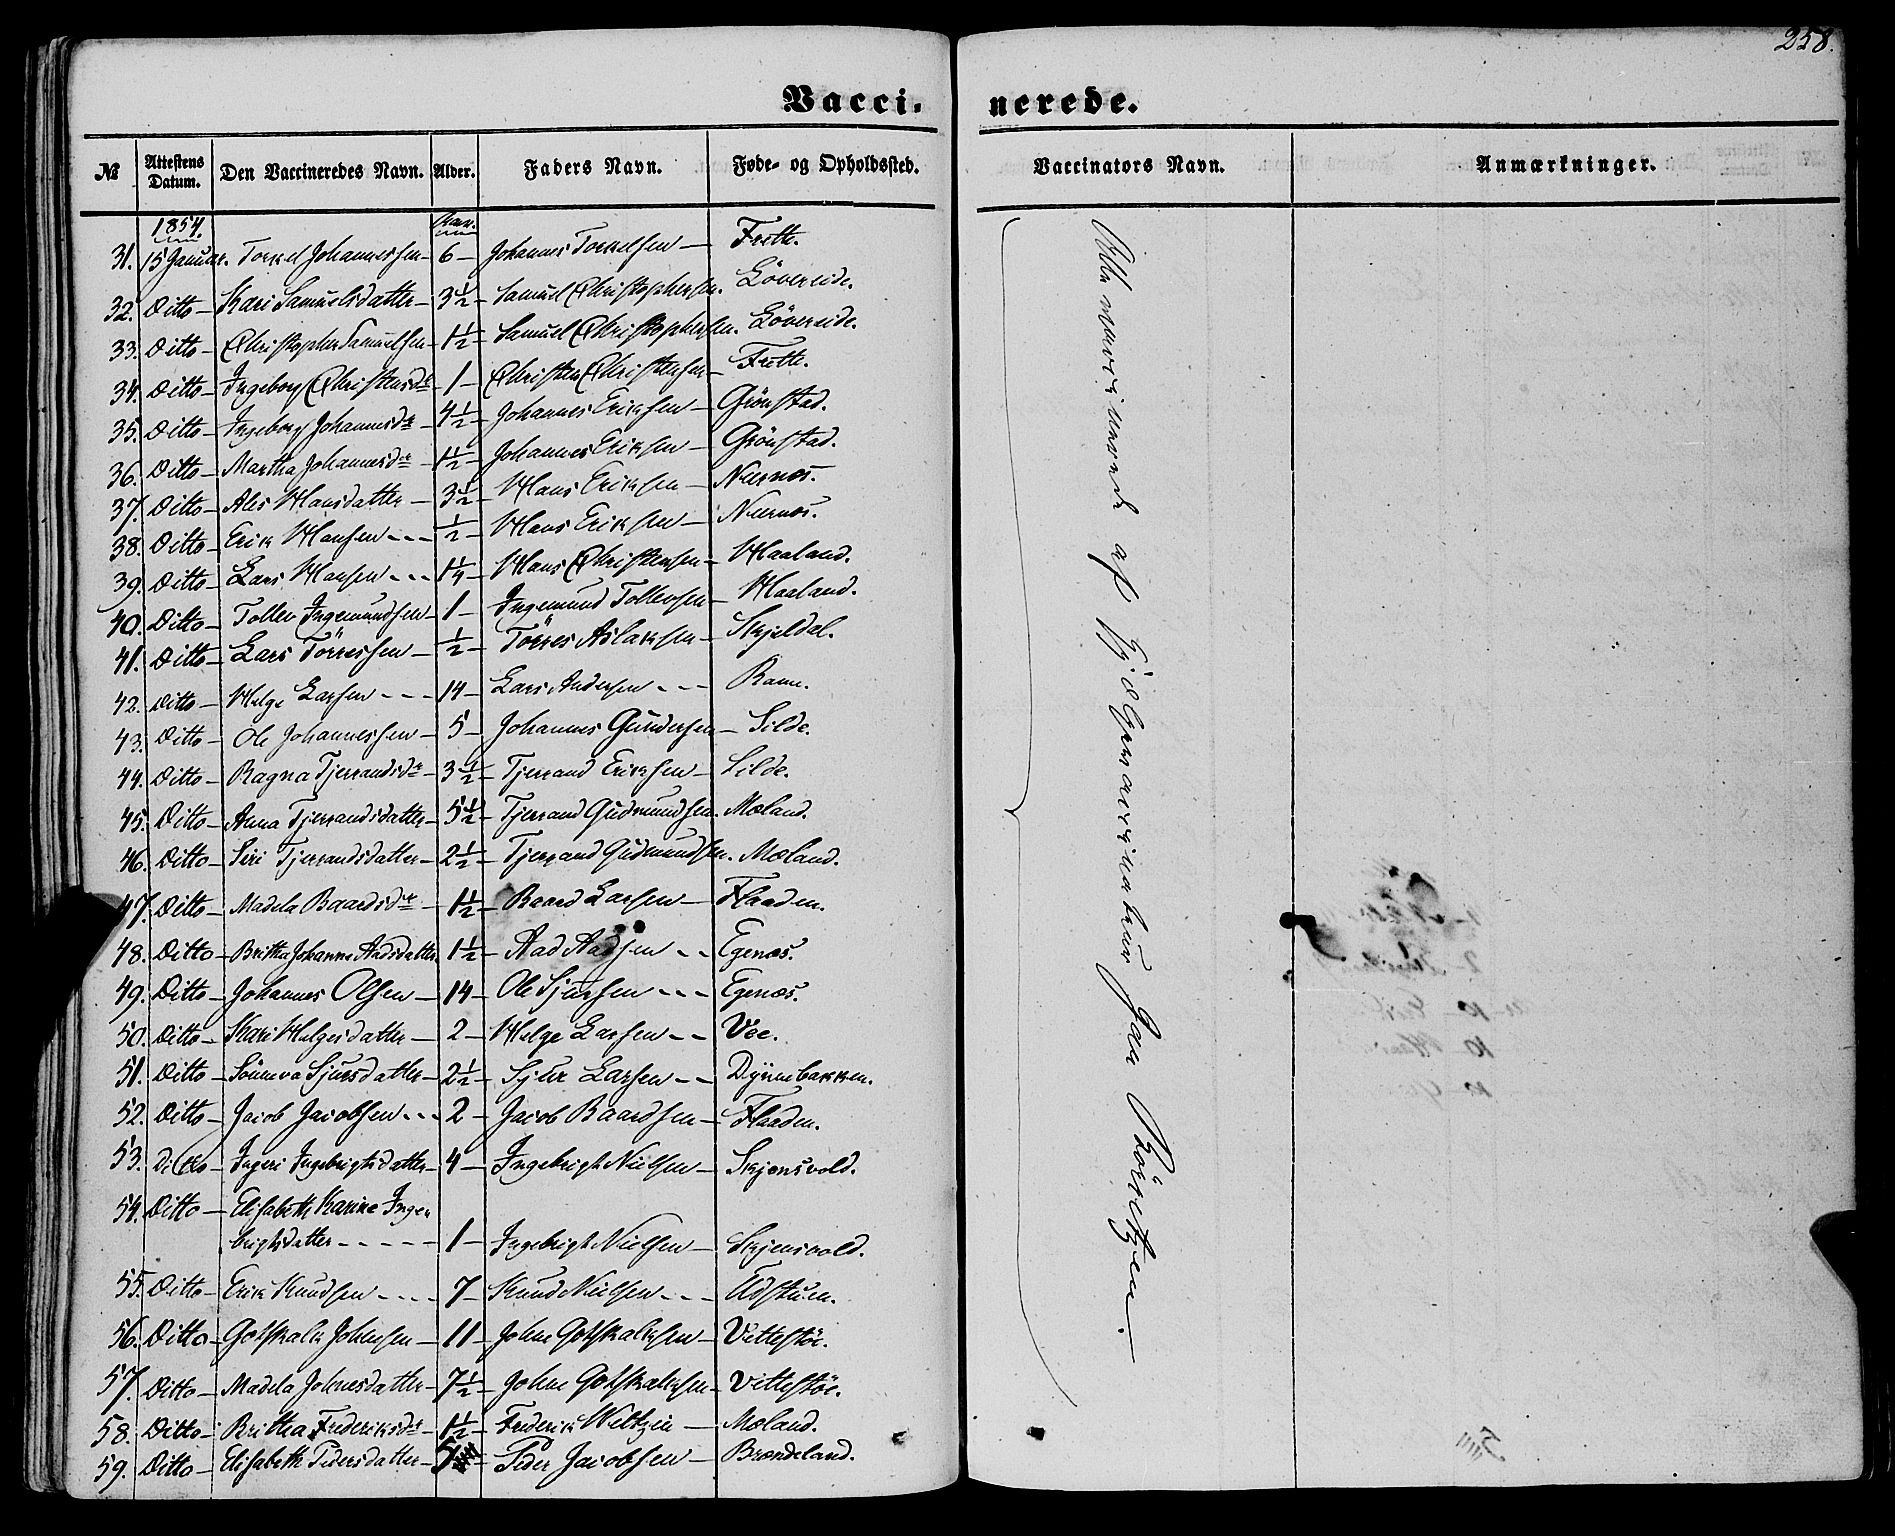 258.
Vacci. nerede.
№ Attestens Datum. Den Vaccineredes Navn. Alder. Faders Navn. Føde- og Opholdssted. Vaccinators Navn. Anmærkninger.
1854.
31. 15 Januar. Torkel Johannessen 6 Johannes Torkelsen Frette.
32. Ditto Kari Samuelsdatter 3 1/2 Samuel Christophersen. Lövereide.
33. Ditto Christopher Samuelsen 1 1/2 Samuel Christophersen. Løvereide.
34. Ditto Ingeborg Christensdr 1 Christen Christensen Frette.
35. Ditto Ingeborg Johannesdr 4 1/2 Johannes Eriksen Grönstad.
36. Ditto Martha Johannesdr 1 1/2 Johannes Eriksen Grönstad.
37. Ditto Ales Hansdatter 3 1/2 Hans Eriksen Nernæs.
38. Ditto Erik Hansen 1/2 Hans Eriksen Nernæs.
39. Ditto Lars Hansen 1 1/4 Hans Christensen Haaland.
40. Ditto Tollev Ingemundsen 1 Ingemund Tollevsen Haaland.
41. Ditto Lars Törressen 1/2 Törres Aslaksen Skjeldal.
42. Ditto Helge Larsen 14 Lars Andersen
43. Ditto Ole Johannessen 5 Johannes Gundersen Silde.
44. Ditto Ragna Tjerrandsdr 3 1/2 Tjerrand Eriksen Silde.
45. Ditto Anna Tjerrandsdatter 5 1/2 Tjerrand Gudmundsen. Mæland.
46. Ditto Siri Tjerrandsdatter 2 1/2 Tjerrand Gudmundsen. Mæland.
47. Ditto Madela Baardsdr 1 1/2 Baard Larsen Flaaden.
48. Ditto Britha Johanne Aadsdatter 1 1/2 Aad Aadsen Egenæs.
49. Ditto Johannes Olsen 14 Ole Sjursen Egenæs.
50. Ditto Kari Helgesdatter 2 Helge Larsen Vee.
51. Ditto Sönneva Sjursdatter 2 1/2 Sjur Larsen Dÿnnebakken.
52. Ditto Jacob Jacobsen 2 Jacob Baardsen Flaaden.
53. Ditto Ingeri Ingebrigtsdatter 4 Ingebrigt Nielsen Skjensvold.
54. Ditto Elisabeth Karine Inge-
brigtsdatter 1 Ingebrigt Nielsen Skjensvold.
55. Ditto Erik Knudsen 7 Knud Nielsen Udstuen.
56. Ditto Gotskalk Johnsen 11 Johne Gotskalksen Vettestöe.
57. Ditto Madela Johnesdatter 7 1/2 Johne Gotskalksen Vettestöe.
58. Ditto Britha Frederiksdr 1 1/2 Frederik Weltzin Mæland.
59. Ditto Elisabeth Pedersdatter 5 Peder Jacobsen Brændeland.
Alle vaccinerede af Hjælpevaccinateur Jan Böritzen.